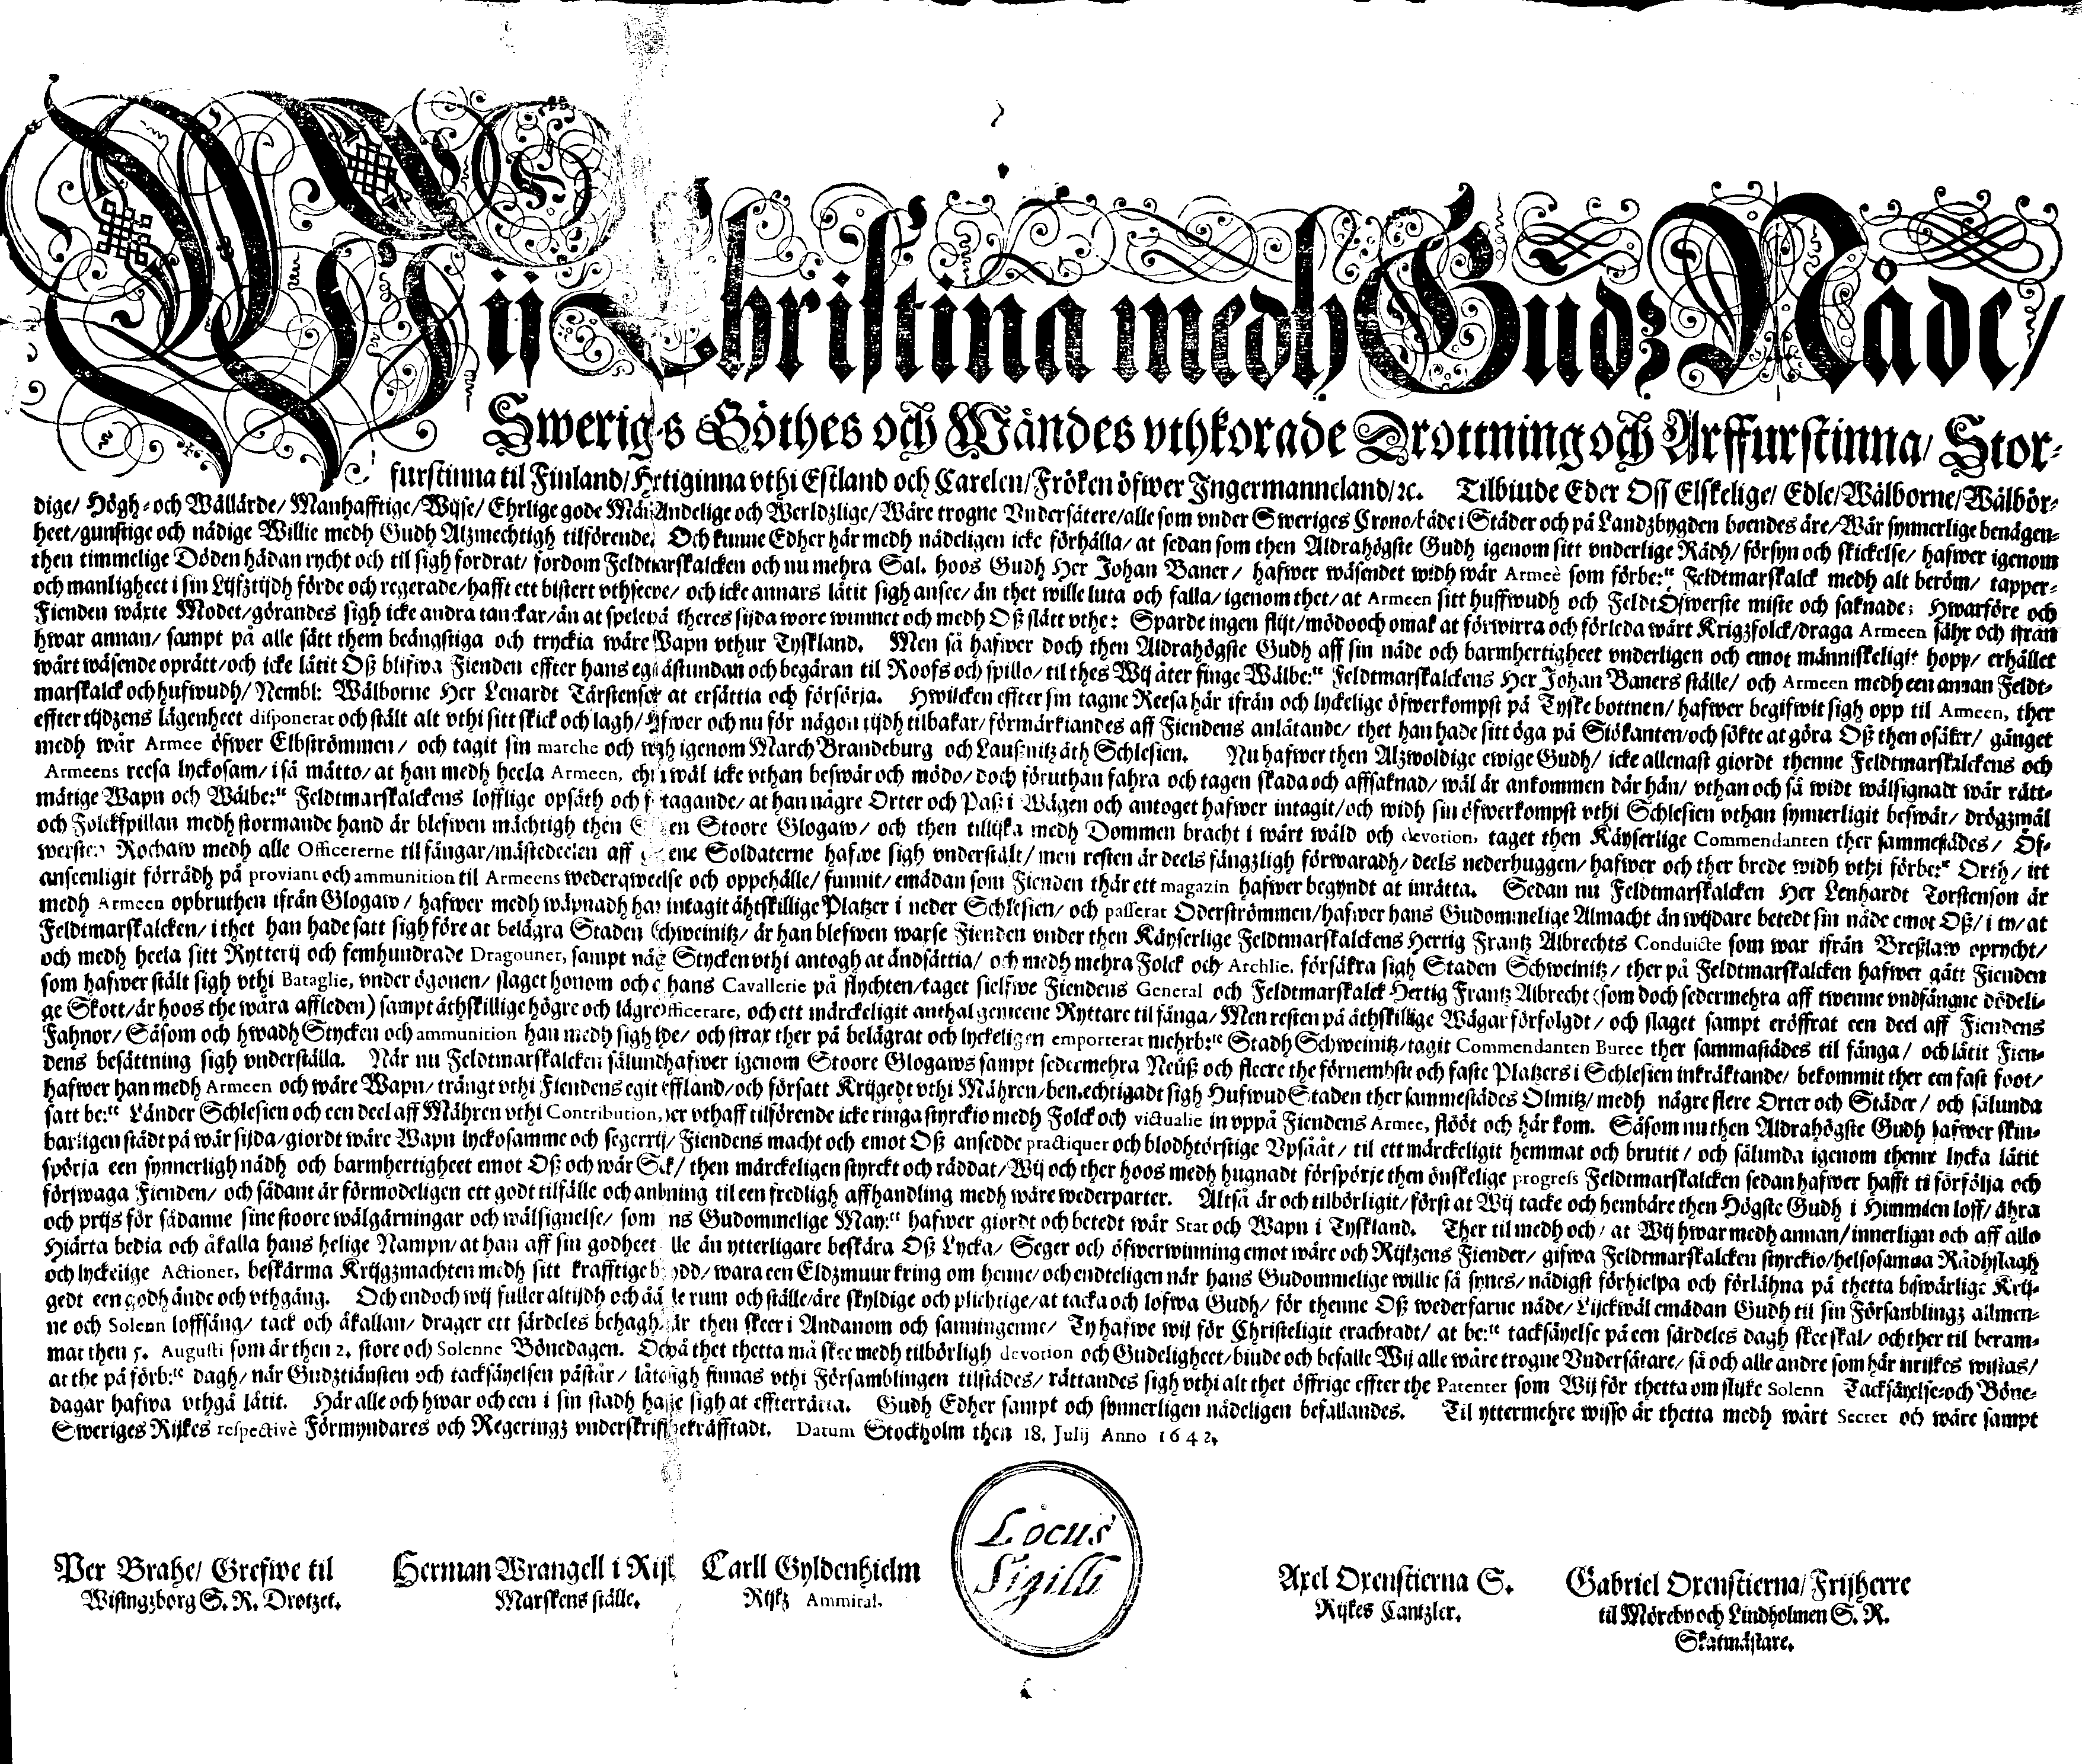 Wij Christina medh Gudz Nåde/
Sweriges Göthes och Wändes vthkorade Drottning och Arffurstinna/ Stor-
furstinna til Finland/ Hertiginna vthi Estland och Carelen/ Fröken öfwer Ingermanneland/ ꝛc. Tilbiude Eder Oss Elskelige/ Edle/ Wälborne/ Wälbör-
dige/ Högh- och Wällärde/ Manhafftige/ Wijse/ Ehrlige gode Män Andelige och Werldzlige/ Wåre trogne Vndersåtere/ alle som vnder Sweriges Crono/ både i Städer och på Landzbygden boendes äre/ Wår synnerlige benägen-
heet/ gunstige och nådige Willie medh Gudh Alzmechtigh tilförende. Och kunne Edher här medh nådeligen icke förhålla/ at sedan som then Aldrahögste Gudh igenom sitt vnderlige Rådh/ försyn och skickelse/ hafwer igenom
then timmelige Döden hädan ryckt och til sigh fordrat/ fordom Feldtmarskalcken och nu mehra Sal. hoos Gudh Her Johan Baner/ hafwer wäsendet widh wår Armeè som förbe:te Feldtmarskalck medh alt beröm/ tapper-
och manligheet i sin Lijfztijdh förde och regerade/ hafft ett bistert vthseende/ och icke annars låtit sigh ansee/ än thet wille luta och falla/ igenom thet/ at Armeen sitt huffwudh och Feldt Öfwerste miste och saknade; Hwarföre och
Fienden wäxte Modet/ görandes sigh icke andra tanckar/ än at spelet på theres sijda wore wunnet och medh Oß slätt vthe: Sparde ingen flijt/ mödo och omak at förwirra och förleda wårt Krigzfolck/ draga Armeen sähr och ifrån
hwar annan/ sampt på alle sätt them beängstiga och tryckia wåre Wapn vthur Tyskland. Men så hafwer doch then Aldrahögste Gudh aff sin nåde och barmhertigheet vnderligen och emot människeligit hopp/ erhållet
wårt wäsende oprätt/ och icke låtit Oß blifwa Fienden effter hans egit åstundan och begäran til Roofs och spillo/ til thes Wij åter finge Wälbe:te Feldtmarskalckens Her Johan Baners ställe/ och Armeen medh een annan Feldt-
marskalck och hufwudh/ Nembl: Wälborne Her Lenardt Tårstenson at ersättia och försörja. Hwilcken effter sin tagne Reesa här ifrån och lyckelige öfwerkompst på Tyske bottnen/ hafwer begifwit sigh opp til Armeen, ther
effter tijdzens lägenheet disponerat och stält alt vthi sitt skick och lagh/ hafwer och nu för någon tijdh tilbakar/ förmärkiandes aff Fiendens anlåtande/ thet han hade sitt öga på Siökanten/ och sökte at göra Oß then osäker/ gånget
medh wår Armee öfwer Elbströmmen/ och tagit sin marche och wägh igenom March Brandeburg och Laußnitz åth Schlesien. Nu hafwer then Alzwoldige ewige Gudh/ icke allenast giordt thenne Feldtmarskalckens och
Armeens reesa lyckosam/ i så måtto/ at han medh heela Armeen, ehuruwäl icke vthan beswär och mödo/ doch föruthan fahra och tagen skada och affsaknad/ wäl är ankommen där hän/ vthan och så widt wälsignadt wår rätt-
mätige Wapn och Wälbe:te Feldtmarskalckens lofflige opsåth och företagande/ at han någre Orter och Paß i Wägen och antoget hafwer intagit/ och widh sin öfwerkompst vthi Schlesien vthan synnerligit beswär/ drögzmål
och Folckspillan medh stormande hand är blefwen mächtigh then Stoore Glogaw/ och then tillijka medh Dommen bracht i wårt wåld och devotion, taget then Käyserlige Commendanten ther sammestädes/ Öf-
wersten Rochaw medh alle Officererne til fångar/ mästedeelen aff gemene Soldaterne hafwe sigh vnderstält/ men resten är deels fängzligh förwaradh/ deels nederhuggen/ hafwer och ther brede widh vthi förbe:te Orth/ itt
anseenligit förrådh på proviant och ammunition til Armeens wederqweelse och oppehälle/ funnit/ emädan som Fienden thär ett magazin hafwer begyndt at inrätta. Sedan nu Feldtmarskalcken Her Lenhardt Torstenson är
medh Armeen opbruthen ifrån Glogaw/ hafwer medh wäpnadh hand intagit åhtskillige Platzer i neder Schlesien/ och passerat Oderströmmen/ hafwer hans Gudommelige Almacht än wijdare betedt sin nåde emot Oß/ i ty/ at
Feldtmarskalcken/ i thet han hade satt sigh före at belägra Staden Schweinitz/ är han blefwen warse Fienden vnder then Käyserlige Feldtmarskalckens Hertig Frantz Albrechts Conduicte som war ifrån Breßlaw opryckt/
och medh heela sitt Rytterij och femhundrade Dragouner, sampt någre Stycken vthi antogh at ändsättia/ och medh mehra Folck och Archlie, försäkra sigh Staden Schweinitz/ ther på Feldtmarskalcken hafwer gått Fienden
som hafwer stält sigh vthi Bataglie, vnder ögonen/ slaget honom och hans Cavallerie på flychten/ taget sielfwe Fiendens General och Feldtmarskalck Hertig Frantz Albrecht (som doch sedermehra aff twenne vndfångne dödeli-
ge Skott/ är hoos the wåra affleden) sampt åthskillige högre och lägre Officerare, och ett märckeligit anthal gemeene Ryttare til fånga/ Men resten på åthskillige Wägar förfolgdt/ och slaget sampt eröffrat een deel aff Fiendens
Fahnor/ Såsom och hwadh Stycken och ammunition han medh sigh hade/ och strax ther på belägrat och lyckeligen emporterat mehrb:te Stadh Schweinitz/ tagit Commendanten Buree ther sammastädes til fånga/ och låtit Fien-
dens besättning sigh vnderställa. När nu Feldtmarskalcken sålunda hafwer igenom Stoore Glogaws sampt sedermehra Neüß och fleere the förnembste och faste Platzers i Schlesien inkräktande/ bekommit ther een fast foot/
hafwer han medh Armeen och wåre Wapn/ trängt vthi Fiendens egit Arffland/ och försatt Krijgedt vthi Mähren/ bemechtigadt sigh Hufwud Staden ther sammestädes Olmitz/ medh någre flere Orter och Städer/ och sålunda
satt be:te Länder Schlesien och een deel aff Mähren vthi Contribution, ther vthaff tilförende icke ringa styrckio medh Folck och victualie in vppå Fiendens Armee, flööt och här kom. Såsom nu then Aldrahögste Gudh hafwer skin-
barligen städt på wår sijda/ giordt wåre Wapn lyckosamme och segerrijke/ Fiendens macht och emot Oß ansedde practiquer och blodhtörstige Vpsåät/ til ett märckeligit hemmat och brutit/ och sålunda igenom thenne lycka låtit
spörja een synnerligh nådh och barmhertigheet emot Oß och wår Stat/ then märckeligen styrckt och räddat/ Wij och ther hoos medh hugnadt förspörje then önskelige progress Feldtmarskalcken sedan hafwer hafft ti förfölja och
förswaga Fienden/ och sådant är förmodeligen ett godt tilfälle och anledning til een fredligh affhandling medh wåre wederparter. Altså är och tilbörligit/ först at Wij tacke och hembäre then Högste Gudh i Himmelen loff/ ähra
och prijs för sådanne sine stoore wälgärningar och wälsignelse/ som hans Gudommelige May:tt hafwer giordt och betedt wår Stat och Wapn i Tyskland. Ther til medh och/ at Wij hwar medh annan/ innerlign och aff allo
Hiärta bedia och åkalla hans helige Nampn/ at han aff sin godheet wille än ytterligare beskära Oß Lycka/ Seger och öfwerwinning emot wåre och Rijkzens Fiender/ gifwa Feldtmarskalcken styrckio/ helsosamma Rådhslagh
och lyckelige Actioner, beskärma Krijgzmachten medh sitt krafftige beskydd/ wara een Eldzmuur kring om henne/ och endteligen när hans Gudommelige willie så synes/ nådigst förhielpa och förlähna på thetta beswärlige Krij-
gedt een godh ände och vthgång. Och endoch wij fuller altijdh och åå alle rum och ställe/ äre skyldige och plichtige/ at tacka och lofwa Gudh/ för thenne Oß wederfarne nåde/ Lijckwäl emädan Gudh til sin Församblingz allmen-
ne och Solenn loffsång/ tack och åkallan/ drager ett särdeles behagh/ när then skeer i Andanom och sanningenne/ Ty hafwe wij för Christeligit erachtadt/ at be:te tacksäyelse på een särdeles dagh skee skal/ och ther til beram-
mat then 5. Augusti som är then 2. store och Solenne Bönedagen. Och på thet thetta må skee medh tilbörligh devotion och Gudeligheet/ biude och befalle Wij alle wåre trogne Vndersåtare/ så och alle andre som här inrijkes wistas/
at the på förb:te dagh/ när Gudztiänsten och tacksäyelsen påstår/ låte sigh finnas vthi Församblingen tilstädes/ rättandes sigh vthi alt thet öffrige effter the Patenter som Wij för thetta om slijke Solenn Tacksäyelse- och Böne-
dagar hafwa vthgå låtit. Här alle och hwar och een i sin stadh hafwe sigh at effterrätta. Gudh Edher sampt och synnerligen nådeligen befallandes. Til yttermehre wisso är thetta medh wårt Secret och wåre sampt
Sweriges Rijkes respectivè Förmyndares och Regeringz vnderskrifft bekräfftadt. Datum Stockholm then 18. Julij Anno 1642.
Locus
Sigilli
Per Brahe/ Grefwe til
Wisingzborg S. R. Drotzet.
Herman Wrangell i Rijkz
Marskens ställe.
Carll Gyldenhielm
Rijkz Ammiral.
Axel Oxenstierna S.
Rijkes Cantzler.
Gabriel Oxenstierna/ Frijherre
til Möreby och Lindholmen S. R.
Skatmästare.